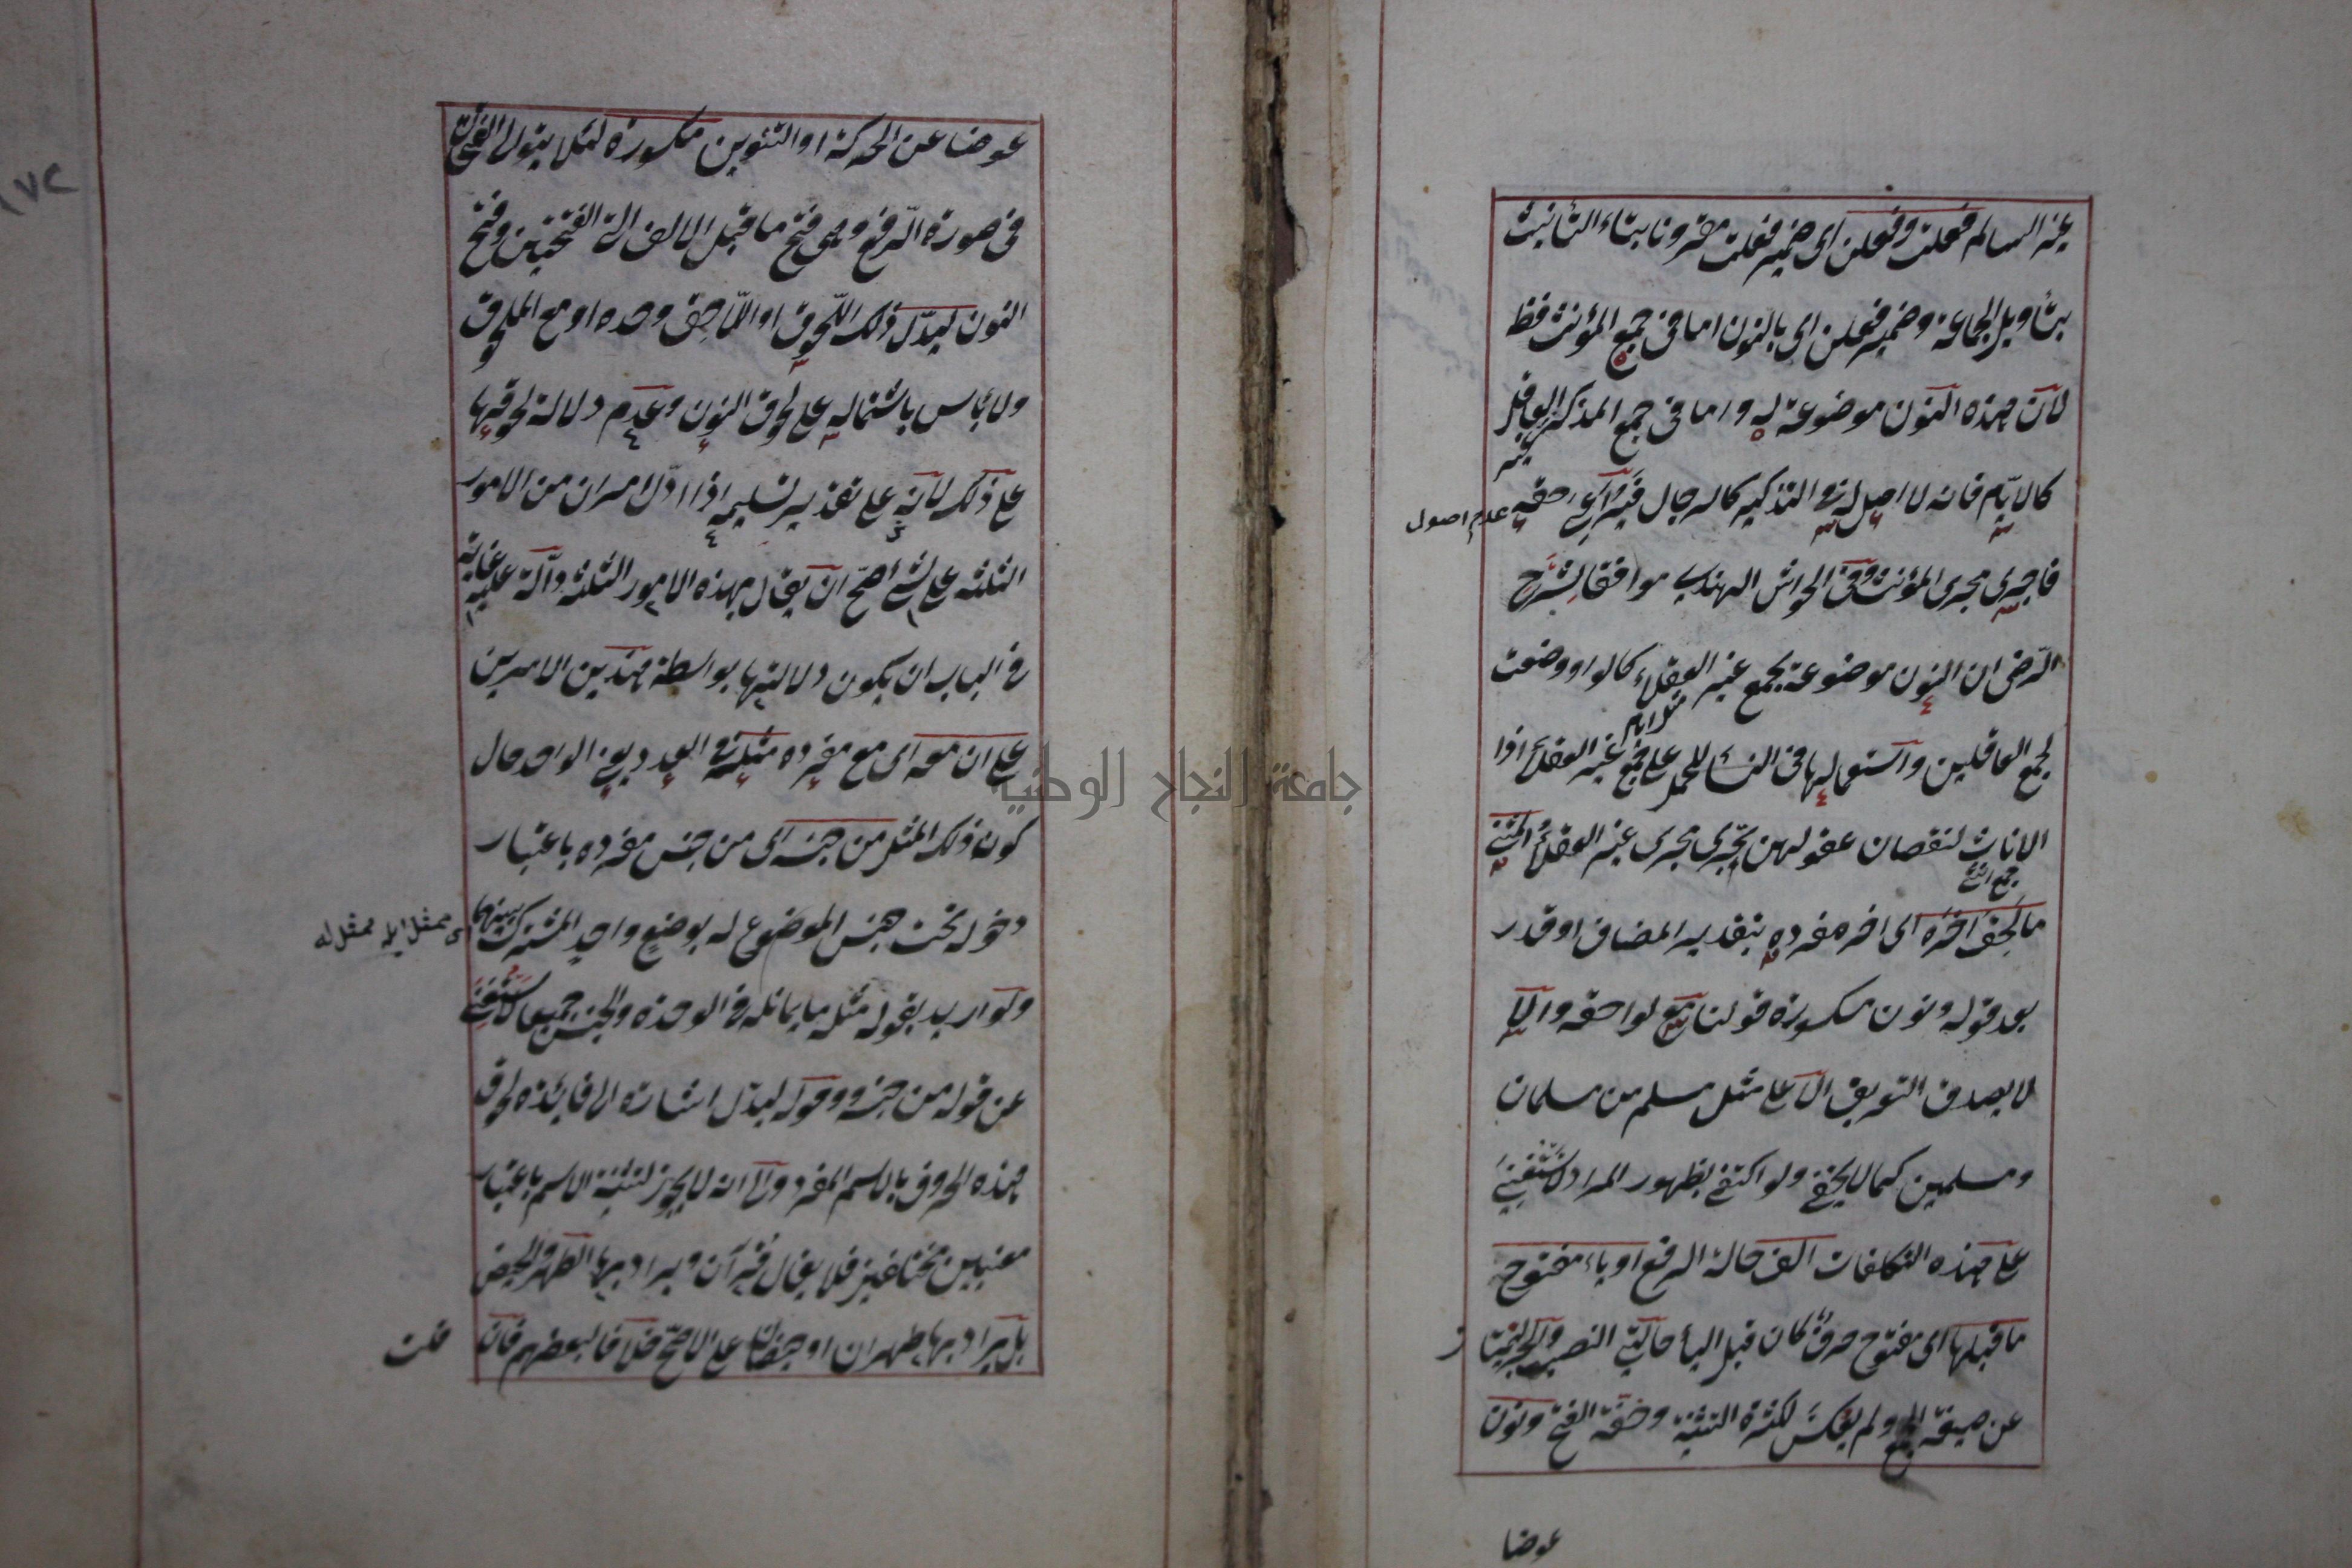 غير السالم فعلت وفعلن اى ضمير فعلت مقرونا بتاء التأنيث
بتأويل الجماعة وضمير فعلن اى بالنون اما فى جمع المؤنث فظ
لأن هذه النون موضوعة له واما فى جمع المذكر الغير العاقل
كالايام فانه لا اصل له فى التذكير كالرجال فيراعى حقه
عدم اصول
فاجرى مجرى المؤنث وفى الحواش الهندى موافقا لشرح
الرضى ان النون موضوعة لجمع غير العقلاء كالواو وضعت
مثل ايام
لجمع العاقلين واستعمالها فى النسأ للحمل على جمع غير العقلأ اذا
الاناث لنقصان عقولهن يجرى مجرى غير العقلأ المثنى
جمع انثى
ما لحق آخره اى اخر مفرده بتقدير المضاف او قدر
بعد قوله ونون مكسورة قولنا مع لواحقه والا
لا يصدق التعريف الا على مثل مسلم من مسلمان
ومسلمين كما لا يخفى ولو اكتفى بظهور المراد لاستغنى
على هذه التكلفات الف حالة الرفع او ياء مفتوح
ما قبلها اى مفتوح حرف كان قبل اليأ حالتى النصب والجر ليتميز
عن صيغة الجمع ولم يعكس لكثرة التثنية وخفة الفتح ونون
عوضا
عوضا عن الحركة او التنوين مكسورة لئلا يتوالى الفتحات
فى صورة الرفع وهى فتح ما قبل الالف التى الفتحتين وفتح
النون ليدل ذلك اللحوق او اللاحق وحده او مع الملحوق
ولا بأس باشتماله على لحوق النون وعدم دلالة لحوقها
على ذلك لانه على تقدير تسليمه اذا دل امران من الامور
الثلثه على شئ اصح ان يقال هذه الامور الثلثة دالة عليه غاية
فى الباب ان يكون دلالتها بواسطة هذين الامرين
على ان معه اى مع مفرده مثله فى العدد يعنى الواحد حال
كون ذلك المثل من جنسه اى من جنس مفرده باعتبار
دخوله تحت جنس الموضوع له بوضع واحد المشترك بينهما
ولو اريد بقوله مثله ما يماثله فى الوحدة والجنس جميعا لاستغنى
عن قوله من جنسه وقوله ليدل اشارة الى فائدة لحوق
هذه الحروف بالاسم المفرد والا انه لا يجوز لتثنية الاسم باعتبار
معنيين مختلفين فلا يقال قرآن ويراد بها الطهر والحيض
بل يراد بها طهران او حيضان على الاصح خلافا لبعضهم فان
قلت
جامعة النجاح الوطنية
١٧٢